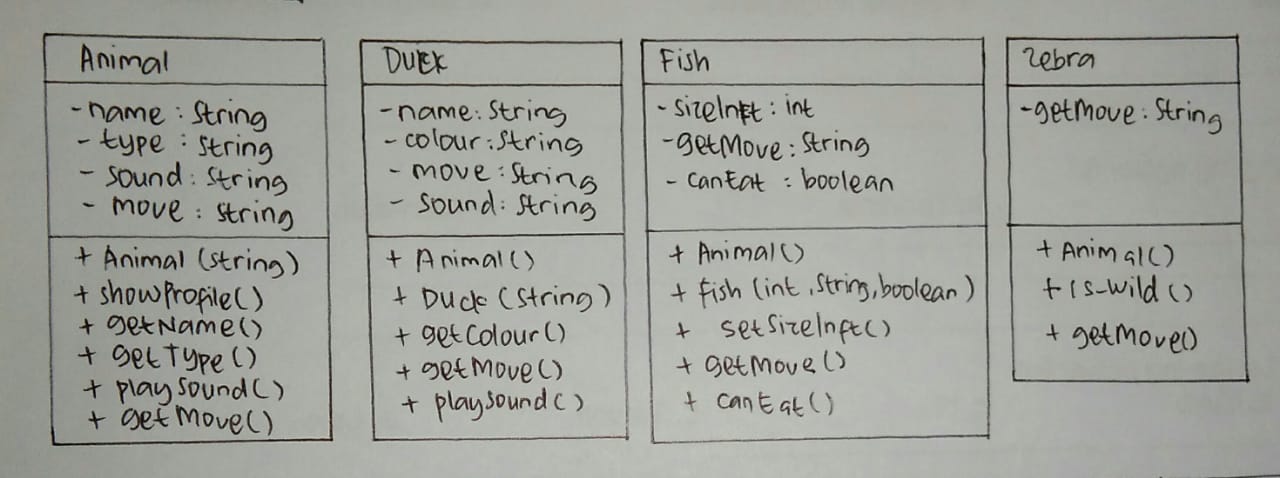 Animal
-name : String
- type : String
- sound : String
- move : String
+ Animal (String)
+ showProfile()
+ getName()
+ getType()
+ playSound()
+ getMove()
Duck
-name : String
- colour : String
- move : String
- sound : String
+ Animal()
+ Duck (String)
+ getColour()
+ getMove()
+ playSound()
Fish
- sizeInft : int
-getMove : String
- canEat : boolean
+ Animal()
+ Fish (int, String, boolean)
+ setSizeInft()
+ getMove()
+ canEat()
Zebra
-getMove : String
+ Animal()
+ is_wild()
+ getMove()